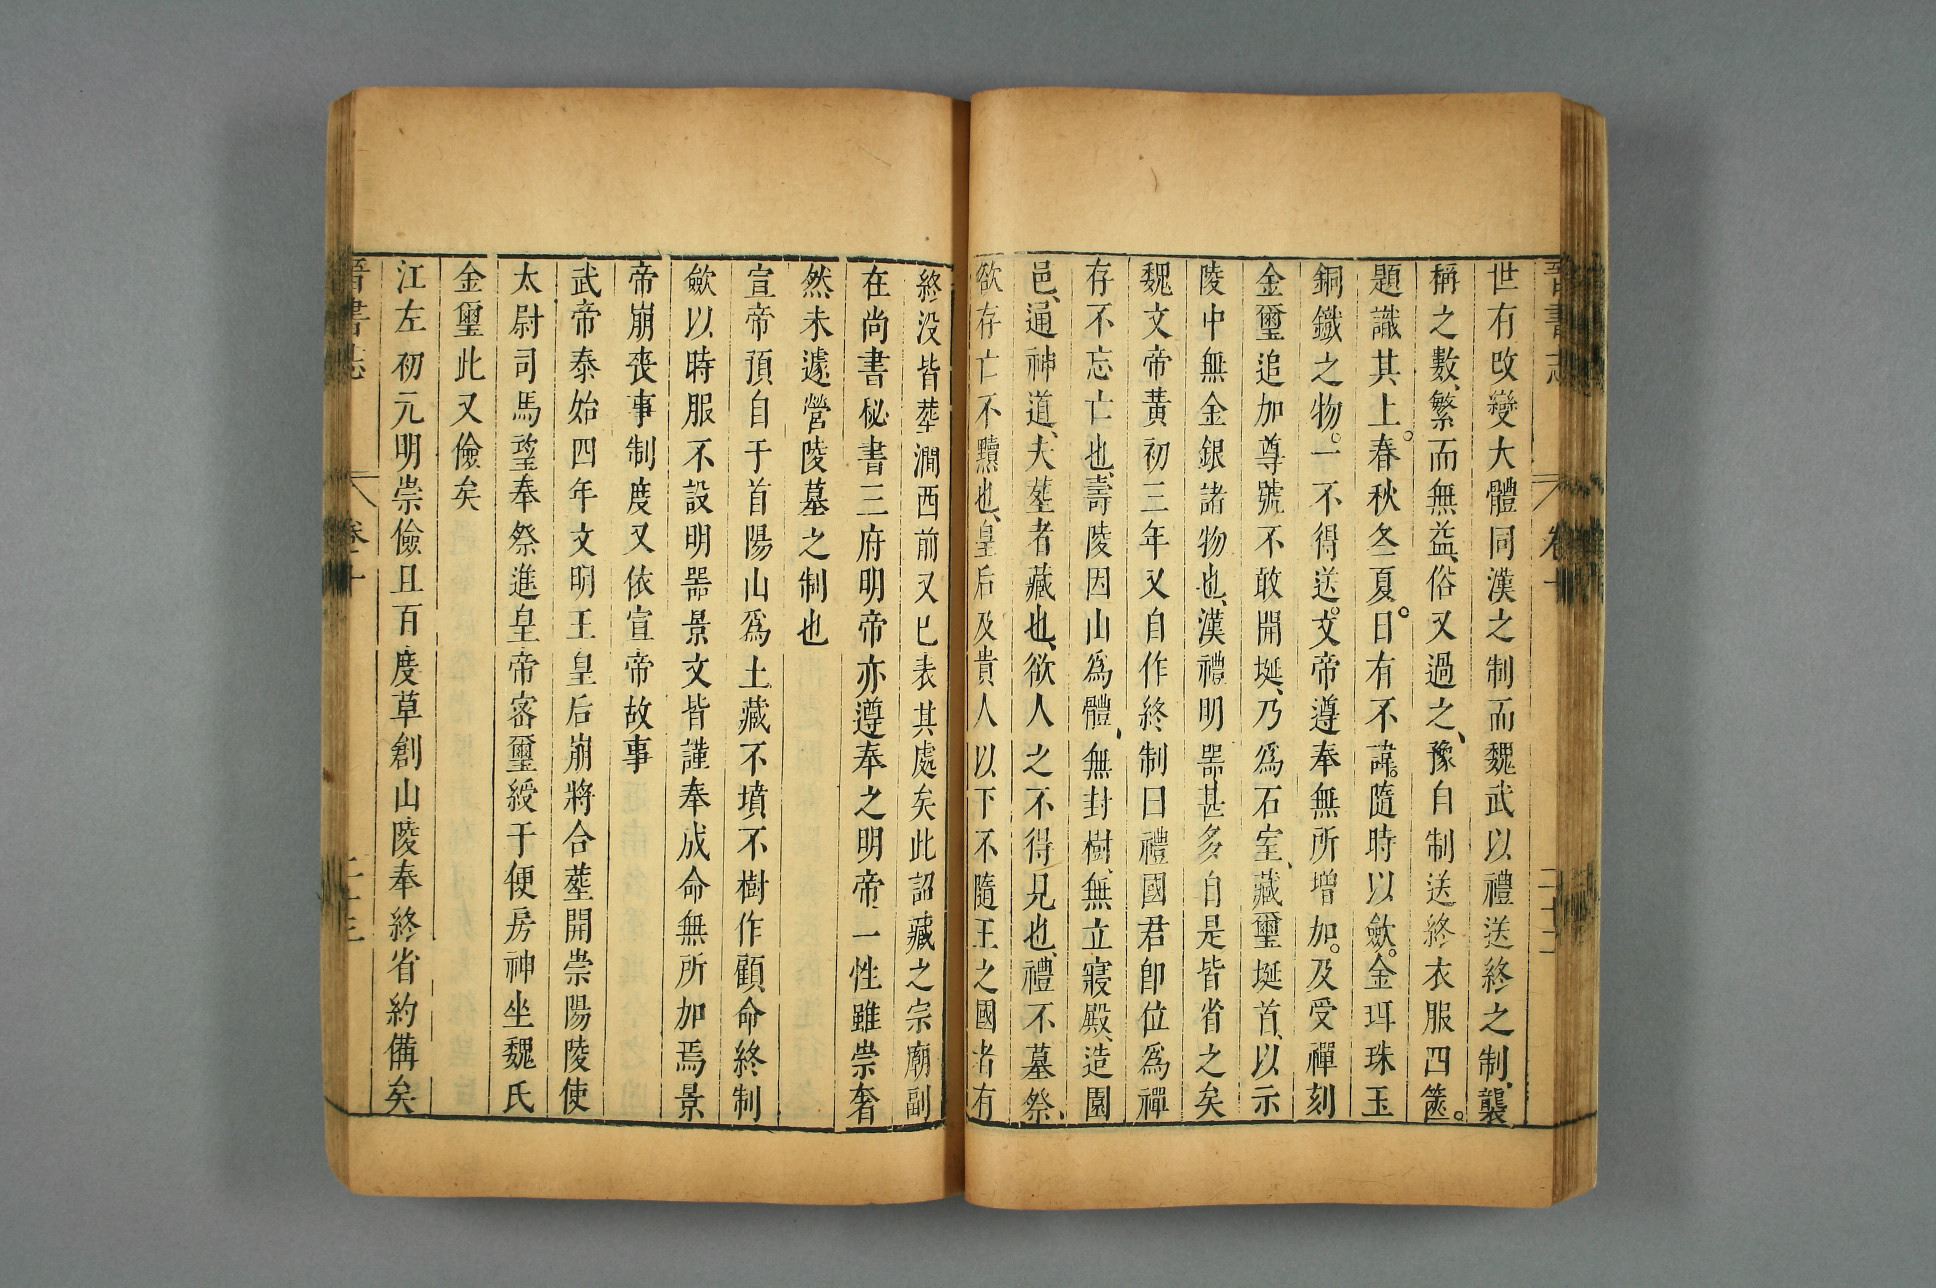 晉書志 卷十 二十二
世有改變大體同漢之制而魏武以禮送終之制、襲
稱之數、繁而無益、俗又過之、豫自制送終衣服四篋。
題識其上。春秋冬夏。日有不諱。隨時以斂。金珥珠玉
銅鐵之物。一不得送。文帝遵奉無所增加。及受禪刻
金璽追加尊號不敢開埏、乃爲石室、藏璽埏首、以示
陵中無金銀諸物也、漢禮明器甚多自是皆省之矣
魏文帝黃初三年又自作終制曰禮國君卽位爲椑
存不忘亡也、壽陵因山爲體、無封樹、無立寢殿、造園
邑、通神道、夫葬者藏也、欲人之不得見也、禮不墓祭、
欲存亡不黷也、皇后及貴人以下不隨王之國者有
終沒皆葬澗西前又已表其處矣此詔藏之宗廟副
在尚書秘書三府明帝亦遵奉之明帝一性雖崇奢
然未遽營陵墓之制也
宣帝預自于首陽山爲土藏不墳不樹作顧命終制
斂以時服不設明器景文皆謹奉成命無所加焉景
帝崩喪事制度又依宣帝故事
武帝泰始四年文明王皇后崩將合葬開崇陽陵使
太尉司馬望奉祭進皇帝密璽綬于便房神坐魏氏
金璽此又儉矣
江左初元明崇儉且百度草創山陵奉終省約備矣
晉書志 卷二十